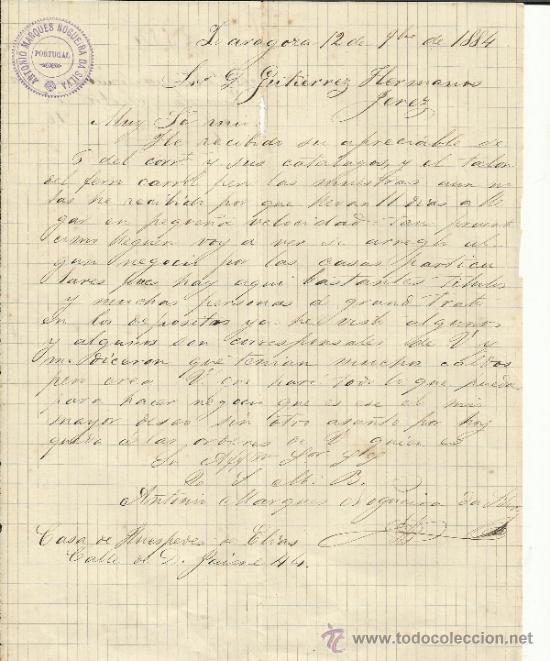 ANTONIO MARQUES NOGUEIRA DA SILVA
PORTUGAL
Zaragoza 12 de 9bre de 1884
Snr D. Gutierrez Hermanos
Jerez
Muy Sr mio
He recibido su apreciable de
5 del corrte y sus catalagos, y el talon
del ferro carril pero las muestras aun no
las he recibido por que llevan 11 dias a lle
gar en pequeña velocidad tan pronto
voy a ver si arreglo al
gun negocio por las casas particu
lares pues hay aqui bastantes titulos
y muchas personas de grand trato
en los depositos ya he visto algunos
y algunos son corresponsales de V y
me diceron que tenian mucho caldos
pero crea V que hare todo lo que pueda
para hacer negocio que es ese el mi
mayor deseo sin otro asunto por hoy
queda a las ordenes de V quien es
Su Affmo
Q. S. M. B.
Antonio Marques Nogueira da Silva
Casa de Huespedes de Elias
Calle de D. Jaime 44.
www.todocoleccion.net